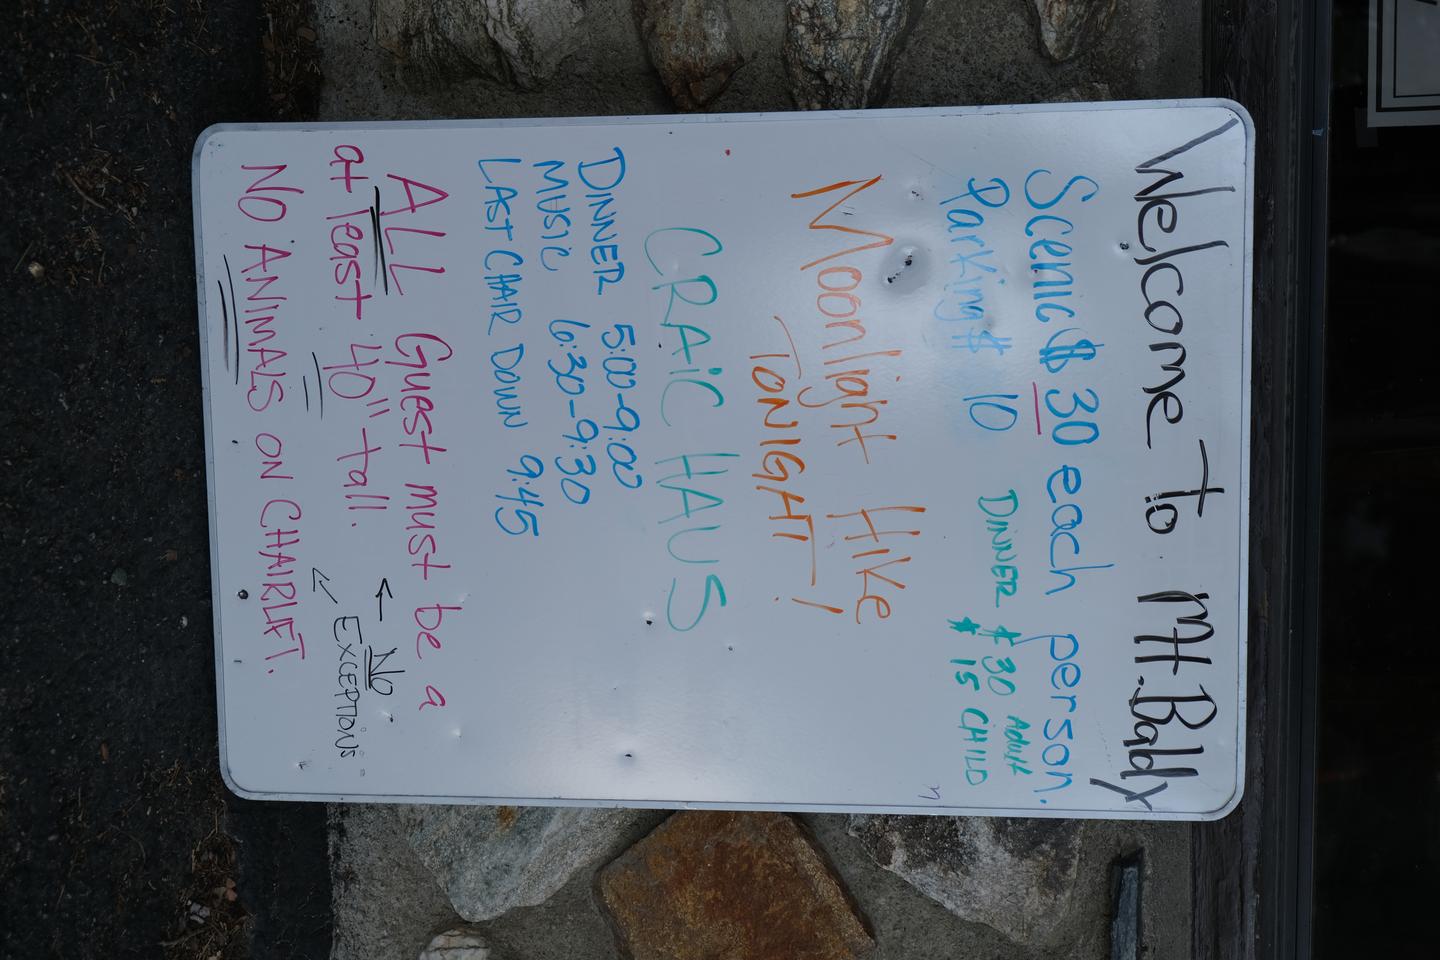 Welcome to Mt. Baldy
Scenic $30 each person.
Parking $ 10
DINNER $ 30 Adult
$ 15 CHILD
Moonlight Hike
TONIGHT!
CRAiC HAUS
DINNER 5:00-9:00
MUSIC 6:30-9:30
LAST CHAIR DOWN 9:45
ALL Guest must be a
at least 40" tall.
← NO
↙ EXCEPTIONS
NO ANIMALS ON CHAIRLIFT.